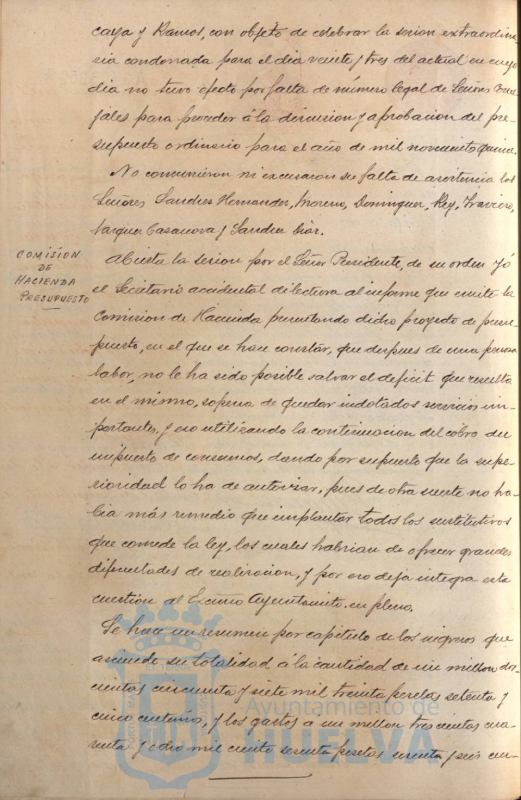 caya y Ramos, con objeto de celebrar la sesion extraordina-
ria condonada para el dia veinte y tres del actual en cuyo
dia no tuvo efecto por falta de número legal de Señores Con-
jales para proceder á la discusion y aprobacion del pre-
supuesto ordinario para el año de mil novecientos quince.
No concurrieron ni excusaron su falta de asistencia los
Señores Sanchez Hernandez, Moreno, Dominguez, Rey, Traviero,
Vazquez Casanova y Sanchez Diaz.
COMISION
DE
HACIENDA
PRESUPUESTO
Abierta la sesion por el Señor Presidente, de su orden yó
el Secretario accidental di lectura al informe que emite la
Comision de Hacienda presentando dicho proyecto de presu-
puesto, en el que se hace constar, que despues de una penosa
labor, no le ha sido posible salvar el deficit que resulta
en el mismo, sopena de quedar indotados servicios im-
portantes, y eso utilizando la continuacion del cobro del
impuesto de consumos, dando por supuesto que la supe-
rioridad lo ha de autorizar, pues de otra suerte no ha-
bia más remedio que implantar todos los sustitutivos
que concede la ley, los cuales habrian de ofrecer grandes
dificultades de realizacion, y por eso deja integra esta
cuestion al Excmo Ayuntamiento en pleno.
Se hace un resumen por capitulo de los ingresos que
asciende su totalidad á la cantidad de un millon dos-
cientas cincuenta y siete mil treinta pesetas setenta y
cinco centimos, y los gastos a un millon trescientas cua-
renta y ocho mil ciento sesenta pesetas y seis cen-
Ayuntamiento de
HUELVA